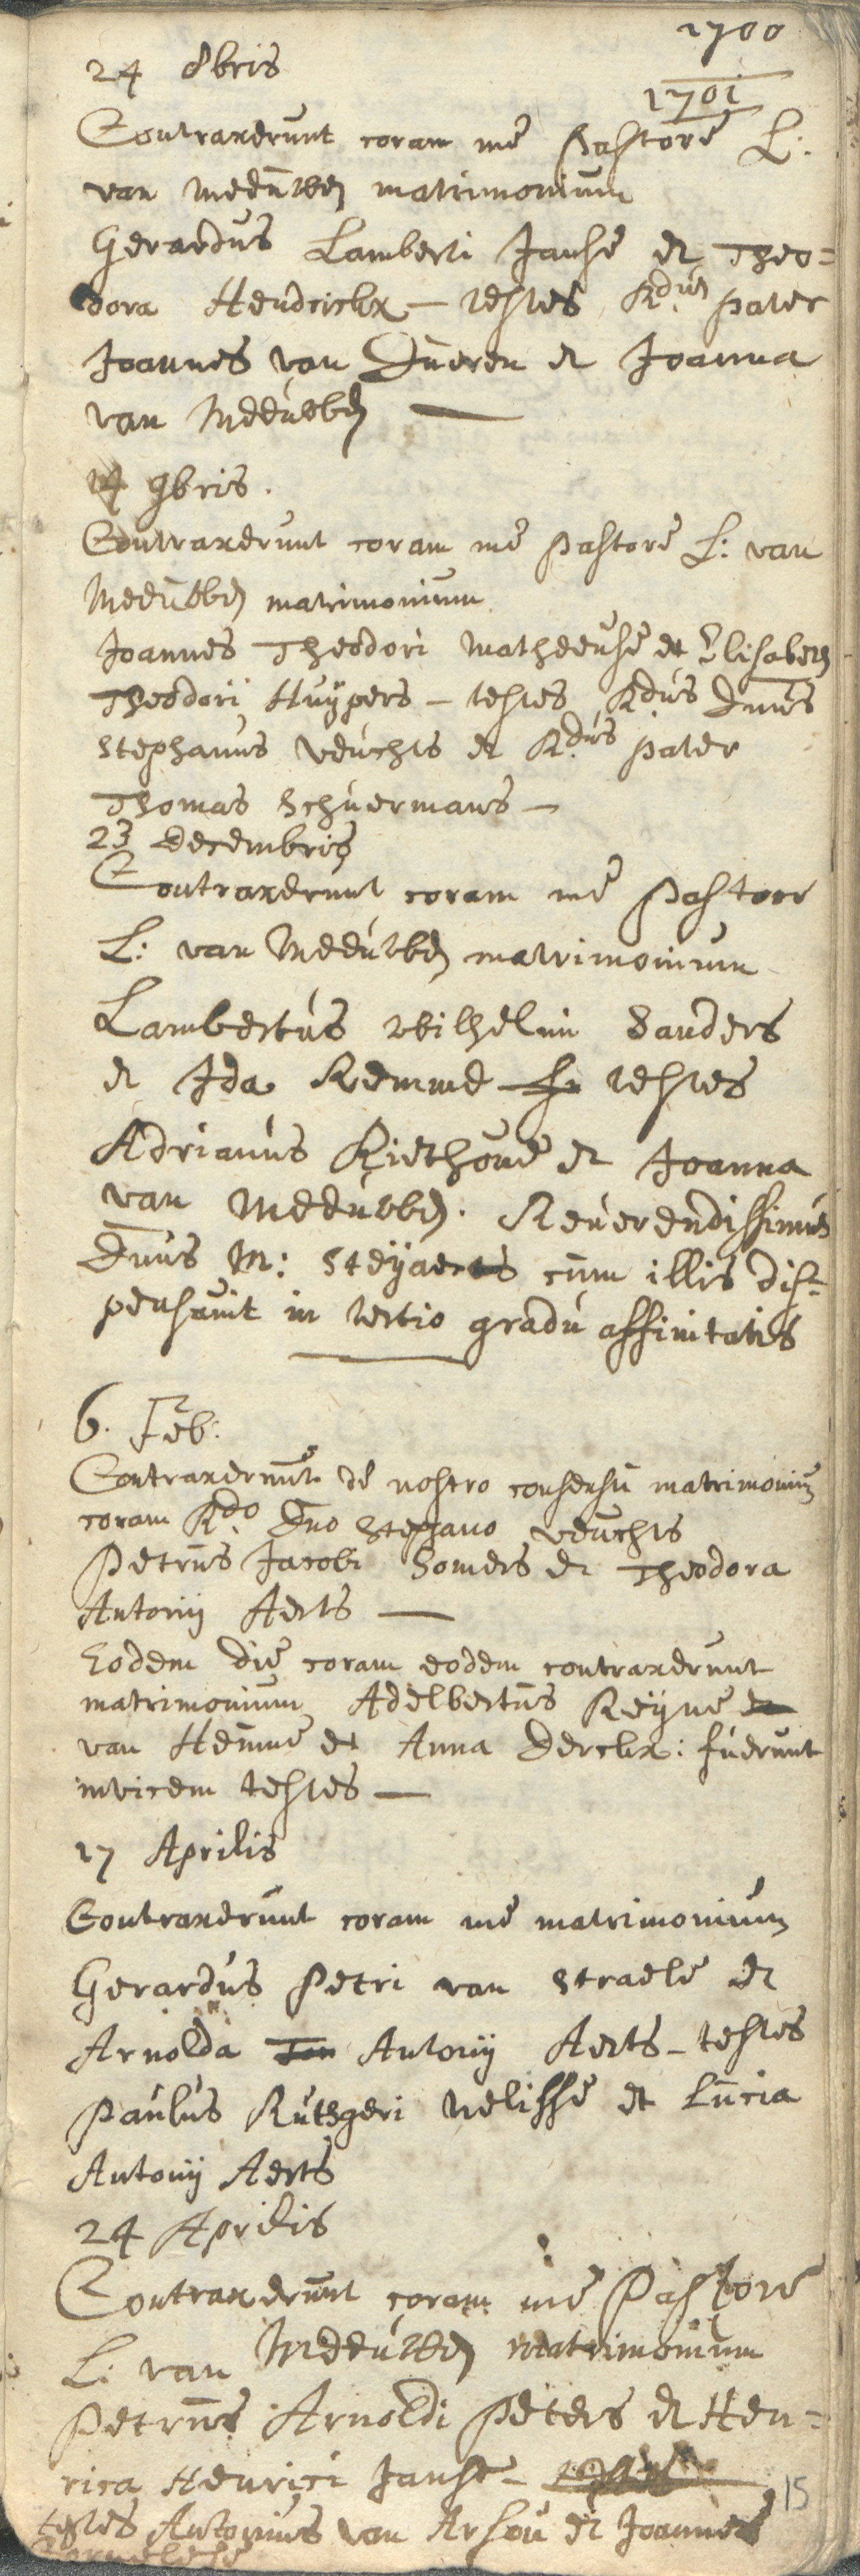 1700
24 8bris
1701
Contraxerunt coram me Pastore L:
van Meeuwen matrimonium
Gerardus Lamberti Janse et Theo=
dora Hendricks — testes Rdus pater
Joannes van Dueren et Joanna
van Meeuwen —
14 9bris.
Contraxerunt coram me Pastore L: van
Meeuwen matrimonium
Joannes Theodori Matheeuse et Elisabeth
Theodori Huijpers — testes Rdus Dnus
Stephanus Veuchts et Rdus pater
Thomas Schuermans —
23 Decembris
Contraxerunt coram me Pastore
L: van Meeuwen matrimonium
Lambertus Wilhelmi Sanders
et Ida Remme testes
Adrianus Riethove et Joanna
van Meeuwen. Reverendissimus
Dnus M: Steyaerts cum illis dis=
pensavit in tertio gradu affinitatis
6. Feb:
Contraxerunt de nostro consensu matrimonium
coram Rdo Dno Stephano Veuchts
Petrus Jacobi Somers et Theodora
Antonij Aerts —
Eodem die coram eodem contraxerunt
matrimonium Adelbertus Reyne
van Heume et Anna Dercks: fuerunt
invicem testes —
17 Aprilis
Contraxerunt coram me matrimonium
Gerardus Petri van Straele et
Arnolda Antonij Aerts — testes
Paulus Rutgeri Nelisse et Lucia
Antonij Aerts
24 Aprilis
Contraxerunt coram me Pastore
L: van Meeuwen matrimonium
Petrus Arnoldi Peters et Hen=
rica Henrici Janse —
15
testes Antonius van Arsou et Joannes